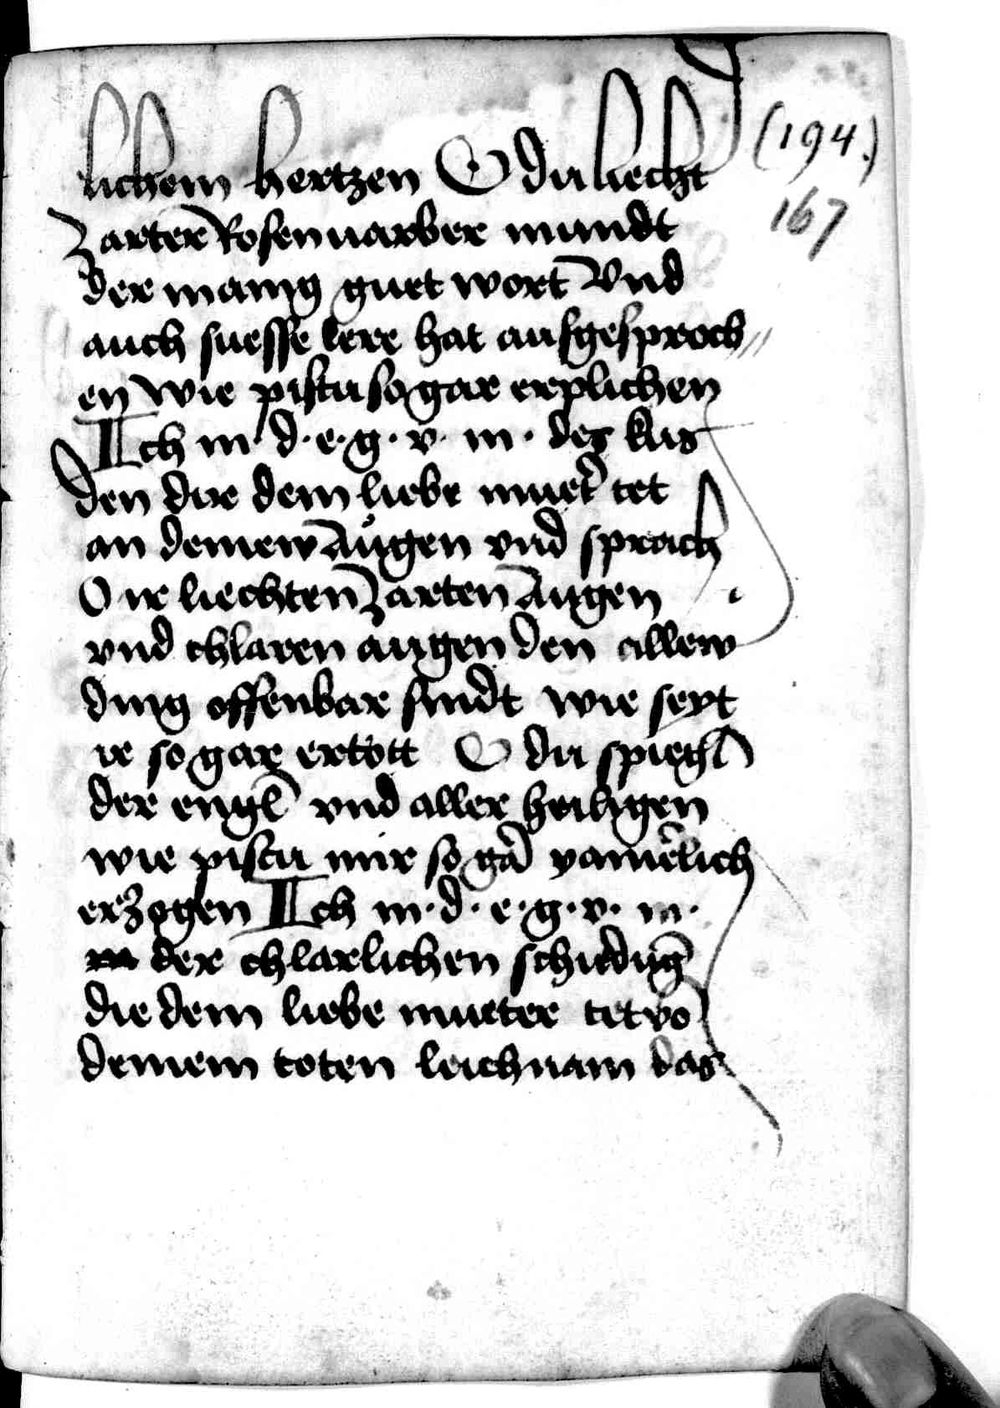 lichem hertzen O du liecht
(194.)
167
Zarter Rosenuarber mundt
der manig guet wort Vnd
auch suesse lere hat ausgesproch//
en Wie pistu so gar erplichen
Ich m d. e. g. v. m. des kus
den dir dein liebe muet' tet
an deinew Augen vnd sprach
O ir liechten Zarten Augen
vnd chlaren augen den allew
ding offenbar sindt wie seyt
ir so gar ertött O du spiegl
der engl vnd aller heiligen
wie pistu mir so gar yamerlich
erzogen Ich m. d. e. g. v. m.
der chlarlichen schidung
die dein liebe mueter tet vo
deinem toten leichnam das